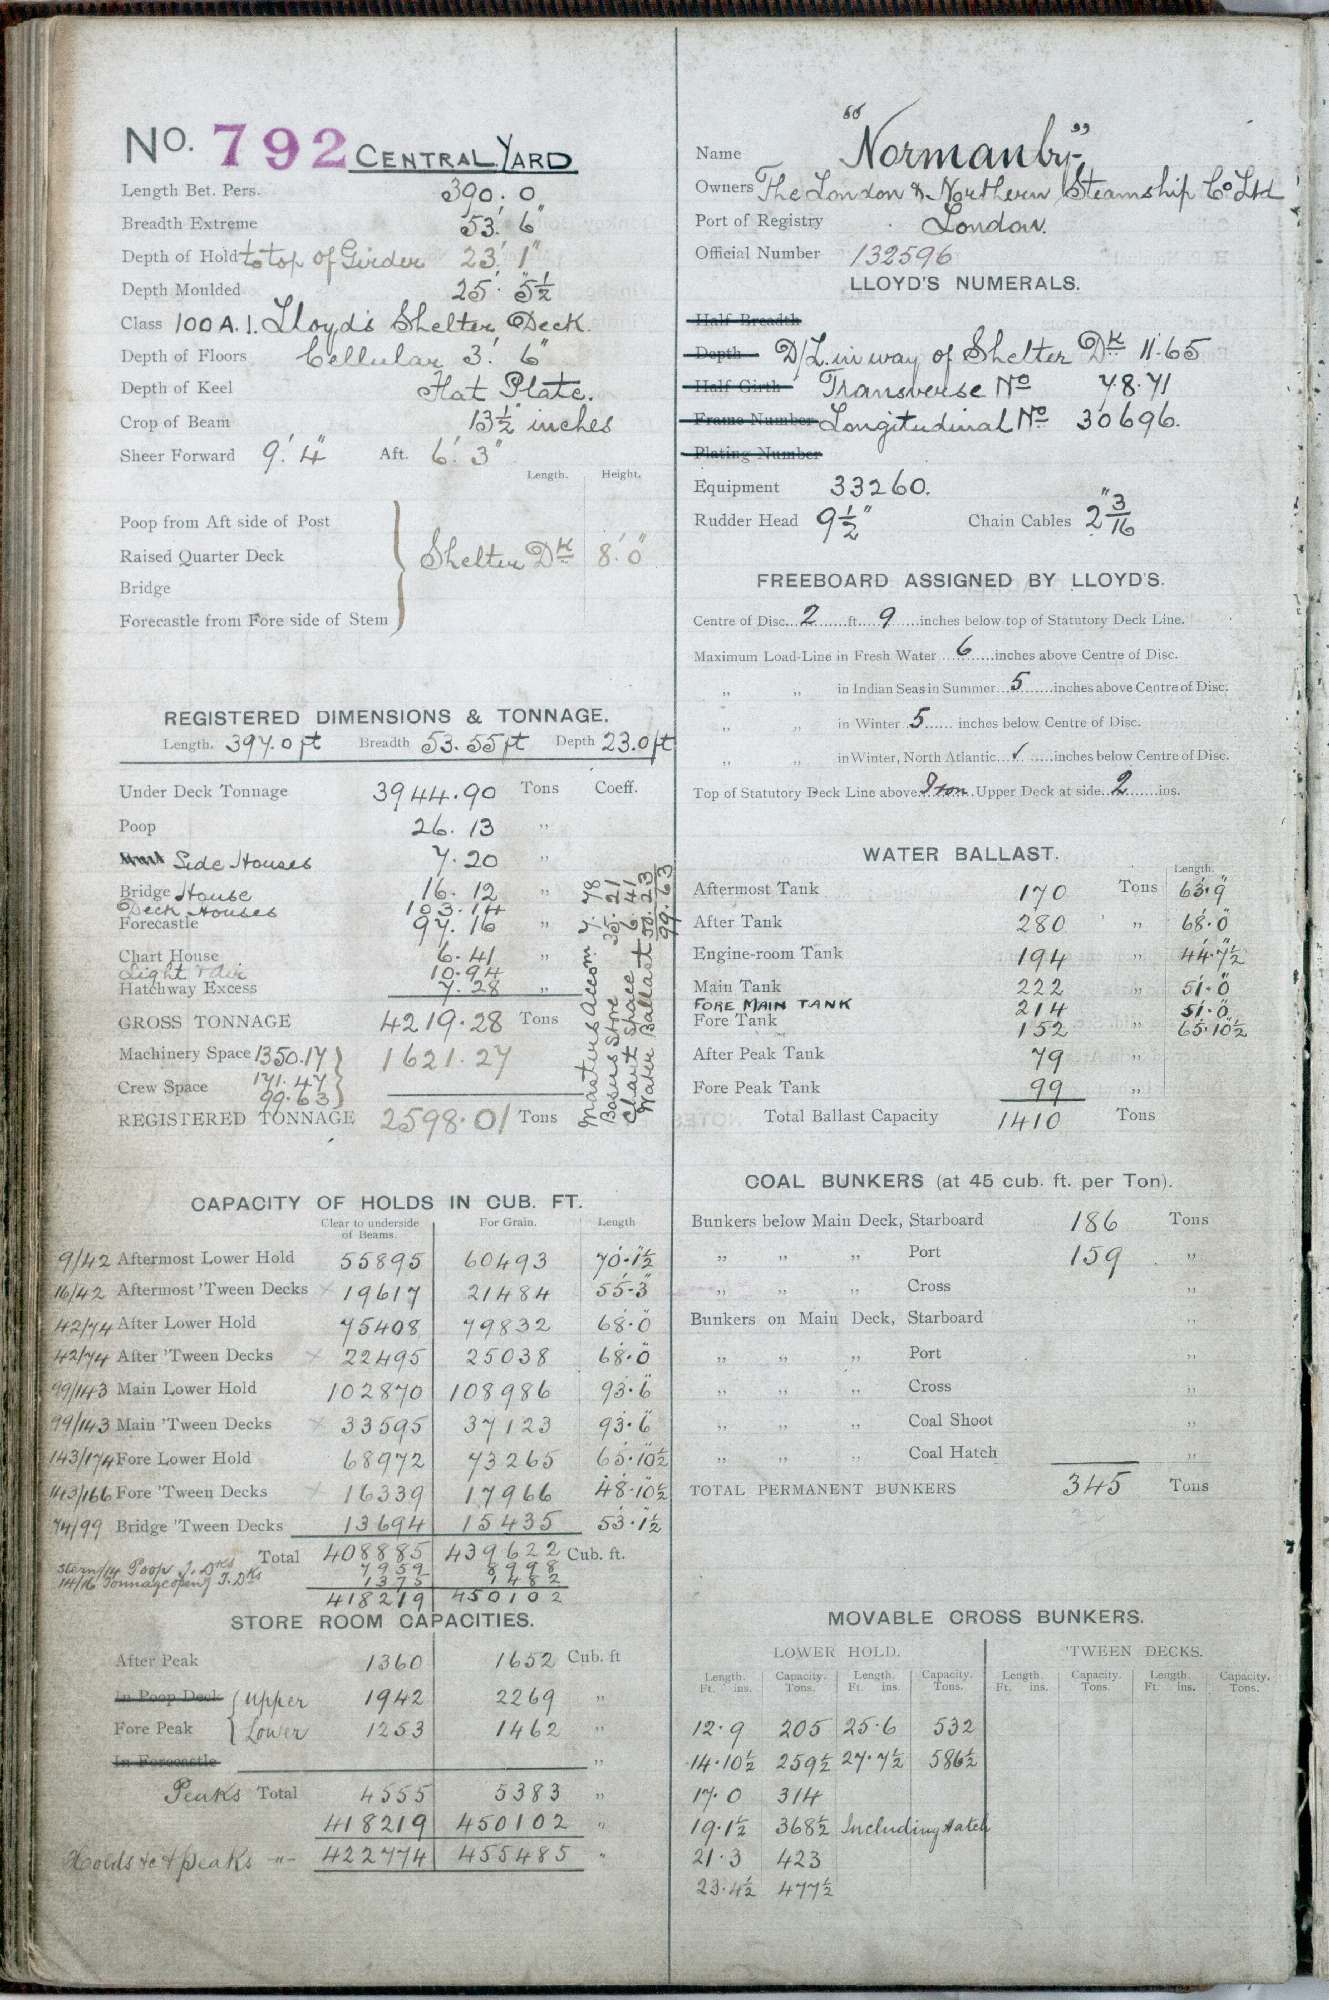 No. 792 CENTRAL YARD
Length Bet. Pers. 390'. 0
Breadth Extreme 53'. 6"
Depth of Hold to top of Girder 23'. 1"
Depth Moulded 25'. 5½"
Class 100 A.1. Lloyd's Shelter Deck.
Depth of Floors Cellular 3'. 6"
Depth of Keel Flat Plate.
Crop of Beam 13½" inches
Sheer Forward 9'. 4" Aft. 6'. 3"
Length. Height.
Poop from Aft side of Post
Raised Quarter Deck Shelter Dk 8'. 0"
Bridge
Forecastle from Fore side of Stem
REGISTERED DIMENSIONS & TONNAGE.
Length. 397.0 ft Breadth 53.55 ft Depth 23.0 ft
Under Deck Tonnage 3944.90 Tons Coeff.
Poop 26.13 "
Side Houses 7.20 "
Bridge House 16.12 "
Deck Houses 103.14
Forecastle 97.16 "
Chart House 6.41 "
Light & Air 10.94
Hatchway Excess 7.28 "
GROSS TONNAGE 4219.28 Tons
Machinery Space 1350.17 } 1621.27
Crew Space 171.47
99.63
REGISTERED TONNAGE 2598.01 Tons
Masters Accom. 7.78
Bosuns Store 35.21
Chart Space 6.41
Water Ballast 50.23
99.63
CAPACITY OF HOLDS IN CUB. FT.
Clear to underside of Beams. For Grain. Length
9/42 Aftermost Lower Hold 55895 60493 70'.1½"
16/42 Aftermost 'Tween Decks × 19617 21484 55'-3"
42/74 After Lower Hold 75408 79832 68'.0"
42/74 After 'Tween Decks × 22495 25038 68'.0"
99/143 Main Lower Hold 102870 108986 93'.6"
99/143 Main 'Tween Decks × 33595 37123 93'.6"
143/174 Fore Lower Hold 68972 73265 65'.10½"
143/166 Fore 'Tween Decks × 16339 17966 48'.10½"
74/99 Bridge 'Tween Decks 13694 15435 53'.1½"
Total 408885 439622 Cub. ft.
Stern/14 Poop T. Dks 7959 8998
14/16 Tonnage opening T. Dks 1375 1482
418219 450102
STORE ROOM CAPACITIES.
After Peak 1360 1652 Cub. ft
In Poop Deck { Upper 1942 2269 "
Fore Peak { Lower 1253 1462 "
In Forecastle "
Peaks Total 4555 5383 "
418219 450102 "
Holds &c & Peaks -"- 422774 455485 "
Name "Normanby"
Owners The London & Northern Steamship Co Ltd
Port of Registry London.
Official Number 132596
LLOYD'S NUMERALS.
Half Breadth
Depth D/L. in way of Shelter Dk 11.65
Half Girth Transverse No 78.71
Frame Number Longitudinal No 30696.
Plating Number
Equipment 33260.
Rudder Head 9½" Chain Cables 2 3/16"
FREEBOARD ASSIGNED BY LLOYD'S.
Centre of Disc... 2 ......ft.... 9 .....inches below top of Statutory Deck Line.
Maximum Load-Line in Fresh Water 6 inches above Centre of Disc.
" " in Indian Seas in Summer 5 inches above Centre of Disc.
" " in Winter 5 inches below Centre of Disc.
" " in Winter, North Atlantic ✓ inches below Centre of Disc.
Top of Statutory Deck Line above Iron Upper Deck at side 2 ins.
WATER BALLAST.
Length.
Aftermost Tank 170 Tons 63'.9"
After Tank 280 " 68'.0"
Engine-room Tank 194 " 44'.7½"
Main Tank 222 " 51'.0"
FORE MAIN TANK 214 51'.0"
Fore Tank 152 " 65'.10½"
After Peak Tank 79 "
Fore Peak Tank 99 "
Total Ballast Capacity 1410 Tons
COAL BUNKERS (at 45 cub. ft. per Ton).
Bunkers below Main Deck, Starboard 186 Tons
" " " Port 159 "
" " " Cross "
Bunkers on Main Deck, Starboard "
" " " Port "
" " " Cross "
" " " Coal Shoot "
" " " Coal Hatch "
TOTAL PERMANENT BUNKERS 345 Tons
MOVABLE CROSS BUNKERS.
LOWER HOLD. 'TWEEN DECKS.
Length. Capacity. Length. Capacity. Length. Capacity. Length. Capacity.
Ft. ins. Tons. Ft. ins. Tons. Ft. ins. Tons. Ft. ins. Tons.
12.9 205 25.6 532
14.10½ 259½ 27.7½ 586½
17.0 314
19.1½ 368½ Including Hatch
21.3 423
23.4½ 477½